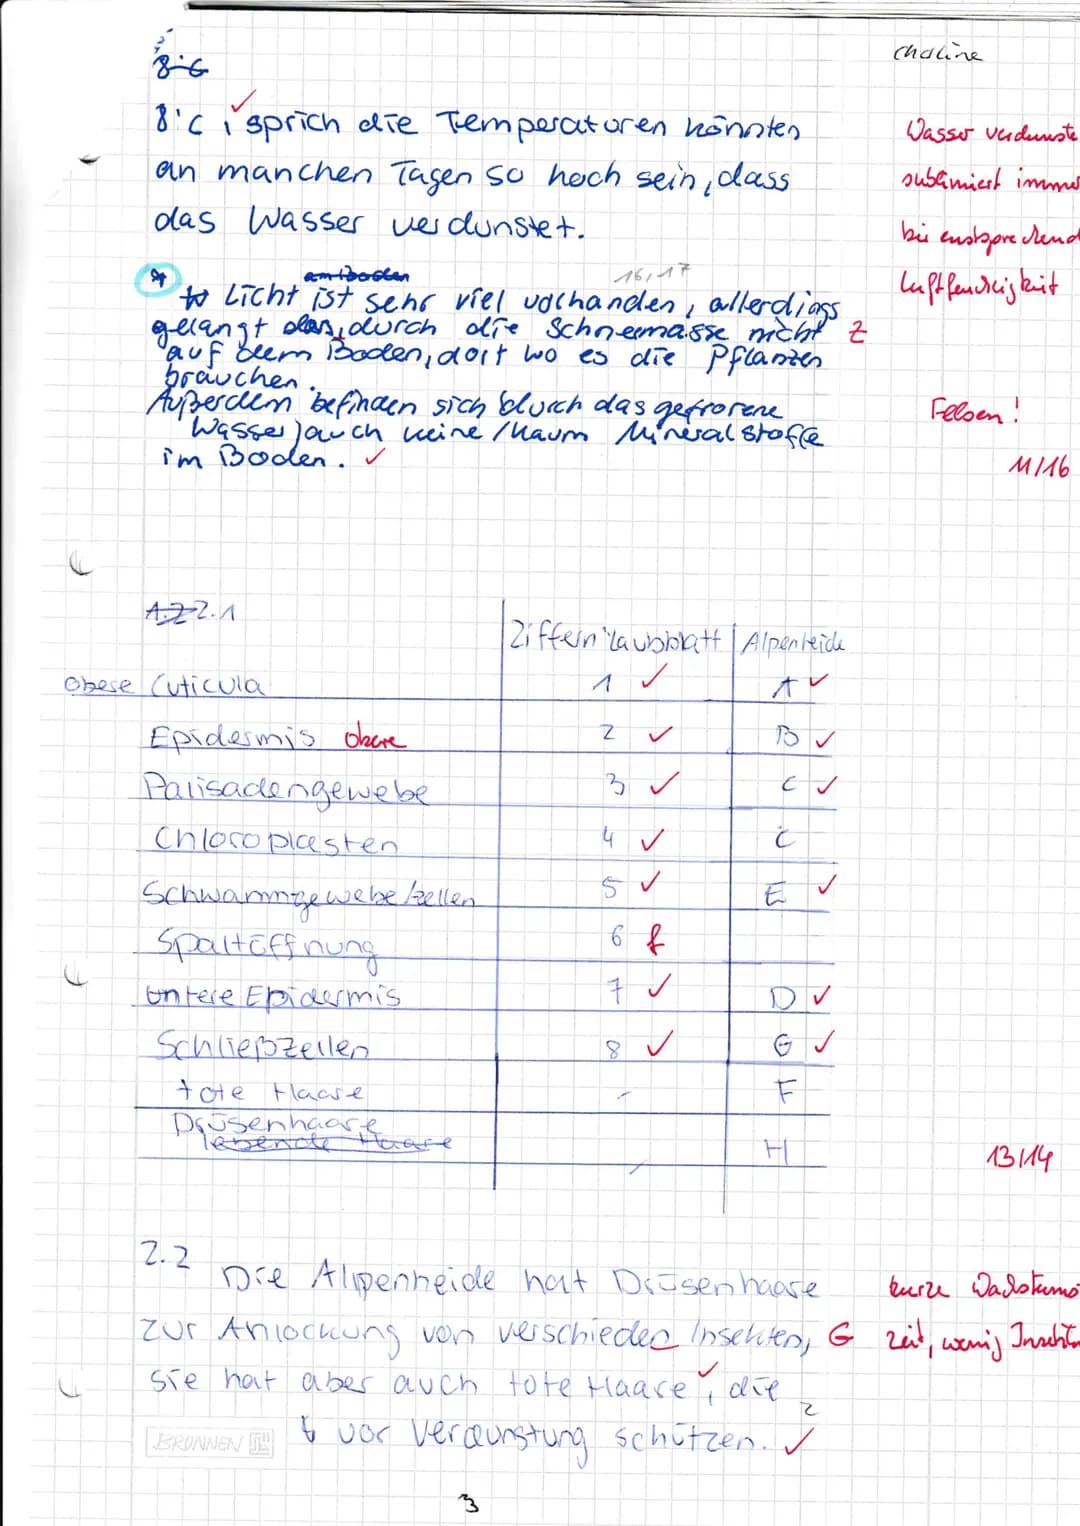 8°C
Choline
8°C, sprich die Temperaturen könnten
Wasser verdunste
an manchen Tagen so hoch sein, dass
sublimiert immer
das Wasser verdunstet.
bei entsprechend
Luftfeuchtigkeit
am Boden
16, 17
* Licht ist sehr viel vorhanden, allerdings
gelangt durch die Schneemasse nicht Z
auf dem Boden, dort wo es die Pflanzen
brauchen.
Außerdem befinden sich durch das gefrorene
Felsen!
Wasser auch keine / kaum Mineralstoffe
im Boden. ✓
11/16
A.2 2.1
Ziffern Laubblatt | Alpenheide
obere Cuticula 1 ✓ A ✓
Epidermis obere 2 ✓ B ✓
Palisadengewebe 3 ✓ C ✓
Chloroplasten 4 ✓ C
Schwammgewebe/zellen 5 ✓ E ✓
Spaltöffnung 6 f
untere Epidermis 7 ✓ D ✓
Schließzellen 8 ✓ G ✓
tote Haare - F
Drüsenhaare
lebende Haare - H
13/14
2.2
Die Alpenheide hat Drüsenhaare
kurze Wachstums
zur Anlockung von verschieden Insekten, G
zeit, wenig Insekte
sie hat aber auch tote Haare, die
2
vor Verdunstung schützen. ✓
BRUNNEN
3